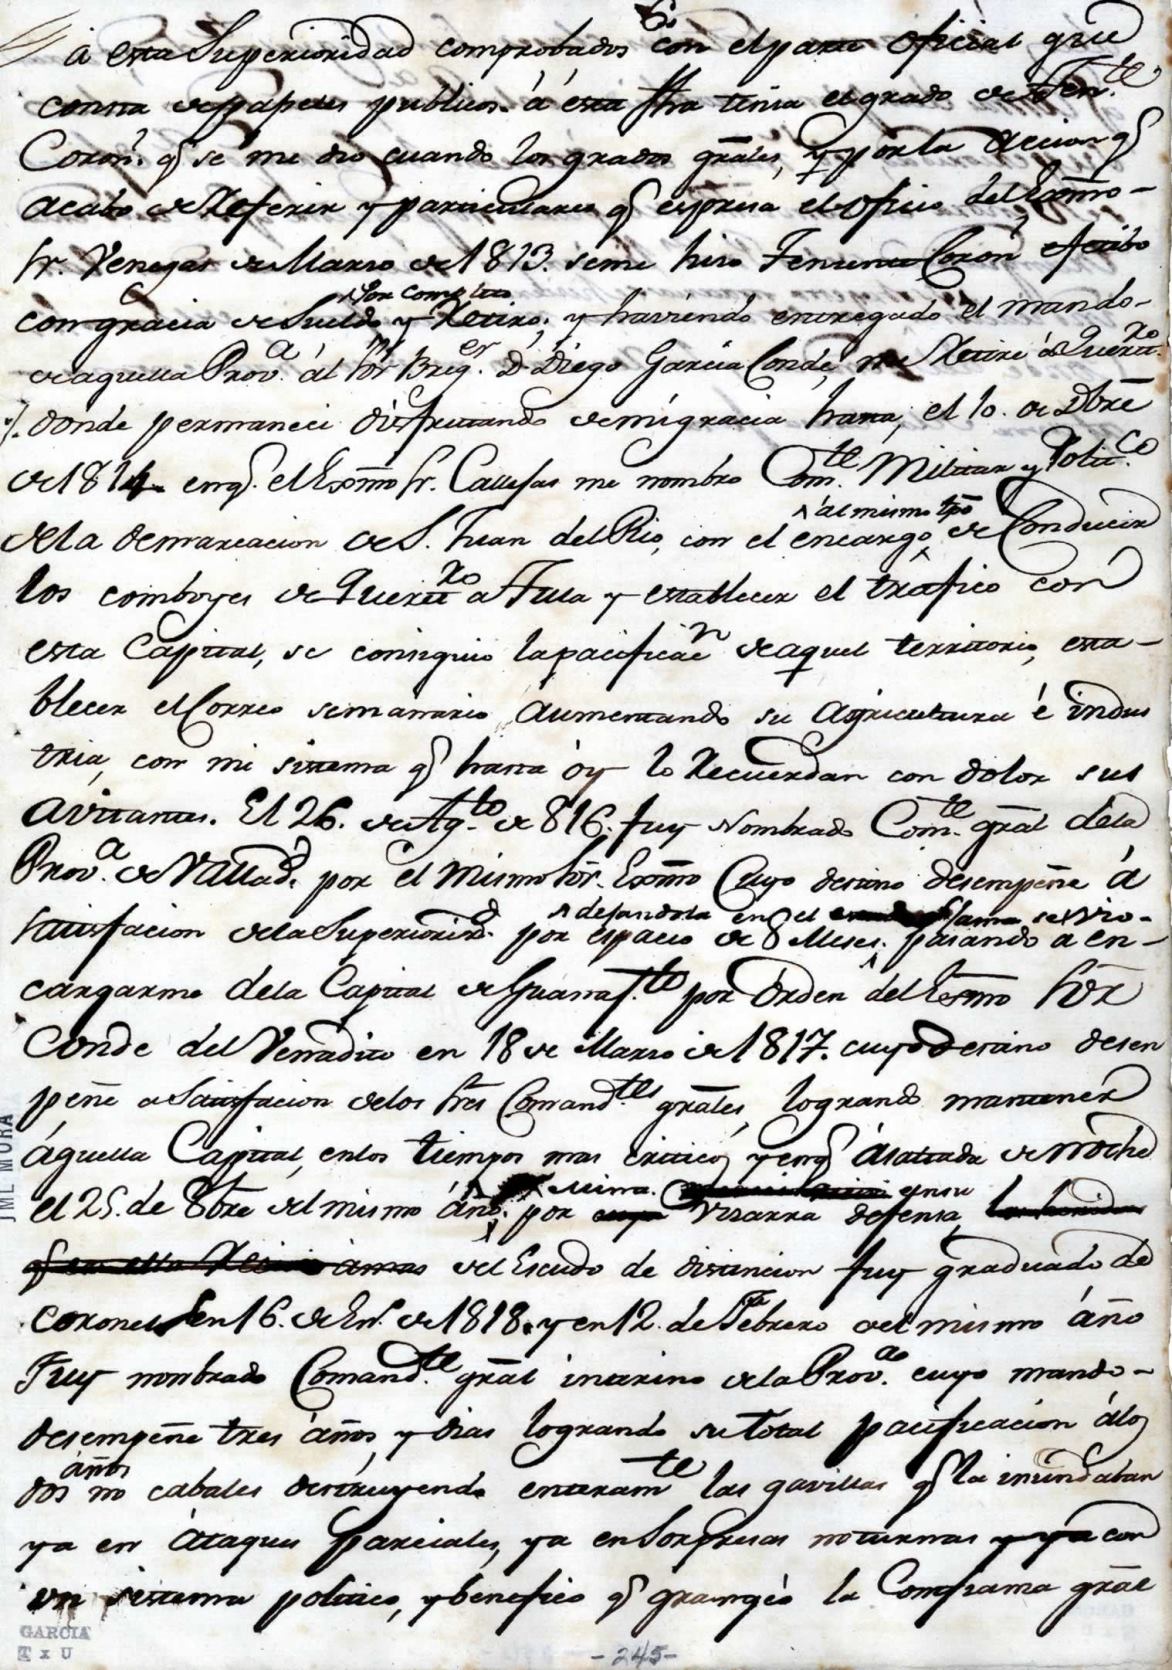 6º
á esta Superioridad comprobados con el parte oficial que
consta de papeles publicos. á esta fha tenia el grado de Ten.te
Coron.l q.e se me dio cuando los grados grāles, y por la accion q.e
acabo de Referir y particulares q.e espresa el oficio del Exmō
Sr. Venegas de Marzo de 1813. seme hiso Teniente Coron.l efectibo
con gracia de Sueldo y Retiro; y haviendo entregado el mando
por completo
de aquella Prov.a ál Sōr Brig.er D. Diego Garcia Conde, me Retiré á Queret.ro
donde permaneci disfrutando de mi gracia hasta, el 10. de Dbrē
de 1814. en q.e el Exmō Sr. Callejas me nombro Com.te Militar y Polit.co
ál mismo tpō
dela demarcacion de S. Juan del Rio, con el encargo de Conducir
los comboyes de Queret.ro a Tula y establecer el tráfico con
esta Capital, se consiguio la pacificac.n de aquel territorio, esta-
blecer el Correo semanario aumentando su agricultura é indus
tria, con mi sistema q.e hasta óy lo Recuerdan con dolor sus
avitantes. El 26. de Ag.to de 816. fuy Nombrado Com.te grāl dela
Prov.a de Vallad.d por el mismo Sōr. Exmō Cuyo destino desempeñe á
dejandola en el servicio
satisfacion dela Superiorid.d por espacio de 8 Meses. pasando a en-
cargarme dela Capital de Guanaj.to por Orden del Exmō Sōr
Conde del Venadito en 18 de Marzo de 1817. cuyo destino desen
peñe a Satisfacion delos Srēs Comand.tes grāles, logrando mantener
áquella Capital, enlos tiempos mas criticos, y en q.e asaltada de noche
mima. ensu
el 25. de 8bre del mismo áño. por Visarra defensa,
del Escudo de distincion fuy graduado de
coronel en 16. de En.o de 1818. y en 12. de Febrero del mismo áño
Fuy nombrado Comand.te grāl interino dela Prov.a cuyo mando
desempeñe tres áños, y dias logrando su total pacificacion álos
años
dos no cabales destruyendo enteram.te las gavillas q.e la inundaban
ya en átaques parciales, ya en Sorpresas nocturnas y ya con
un sistema politico, y benefico q.e grangeó la Comfiansa grāl
JML MORA
GARCIA
T x U
-245-